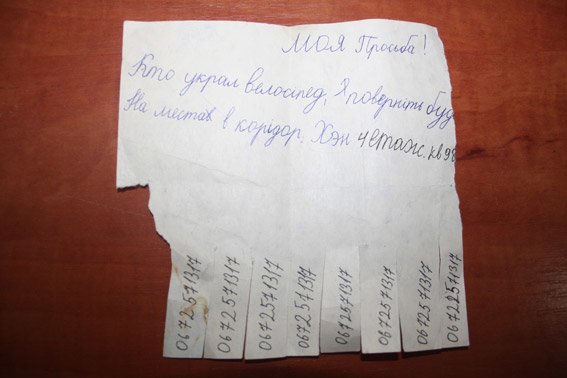 МОЯ Просьба!
Кто украл велосипед, Я поверніть буд
На местав в корідор. Хэн 4 етаж. кв 98
0672571317
0672571317
0672571317
0672571317
0672571317
0672571317
0672571317
0672571317